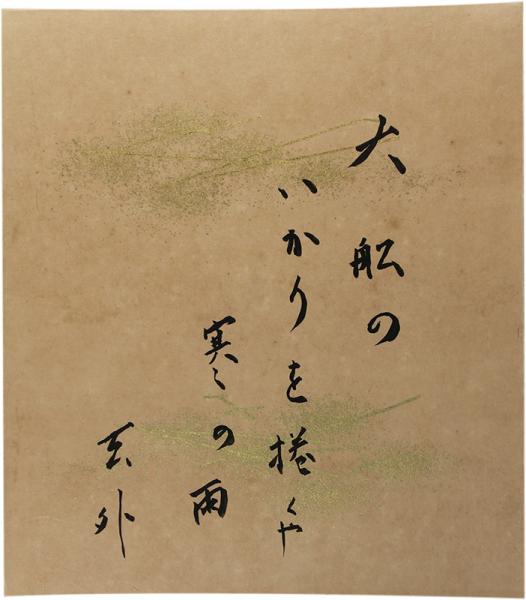 大船の
いかりを捲くや
寒の雨
玄外